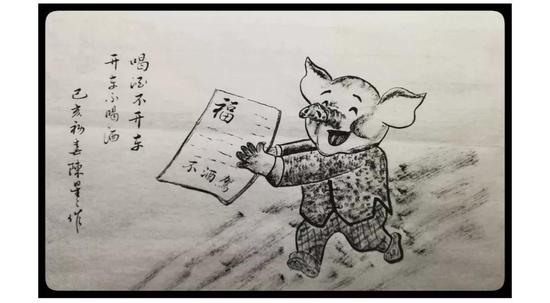 喝酒不开车
开车不喝酒
己亥初陳星作
福
不酒驾